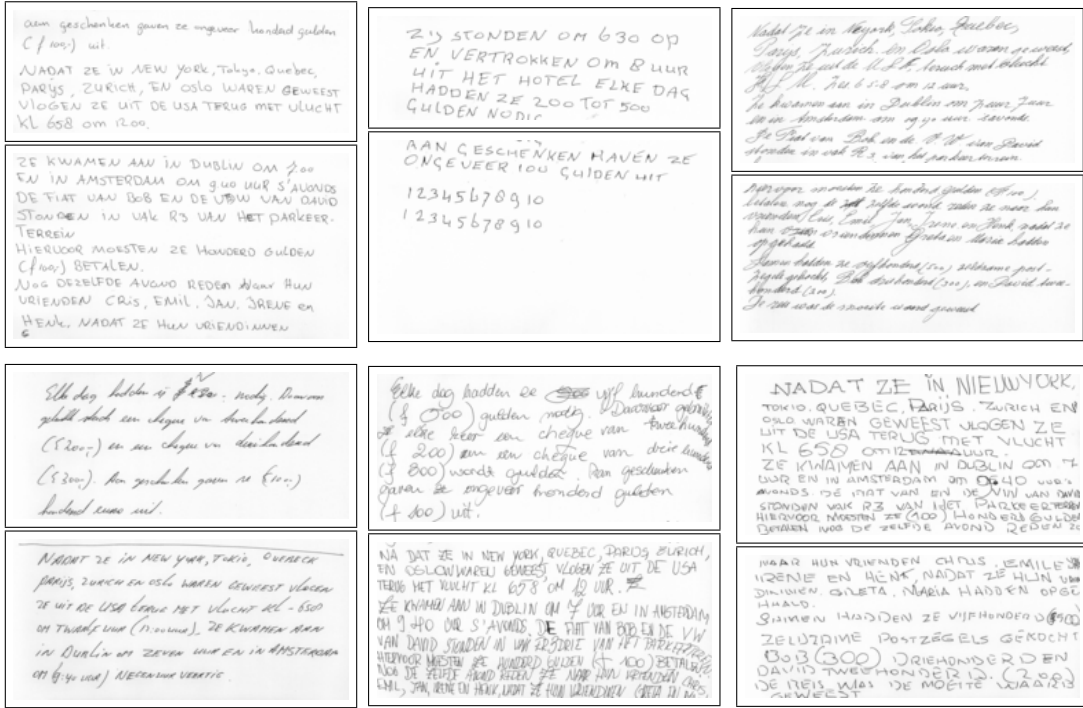 aan geschenken gaven ze ongeveer honderd gulden
(f 100,-) uit.
NADAT ZE IN NEW YORK, Tokyo, Quebec,
PARIJS, ZURICH, EN OSLO WAREN GEWEEST
VLOGEN ZE UIT DE USA TERUG MET VLUCHT
KL 658 om 12.00.
ZE KWAMEN AAN IN DUBLIN OM 7.00
EN IN AMSTERDAM OM 9.40 UUR S'AVONDS
DE FIAT VAN BOB EN DE VW VAN DAVID
STONDEN IN VAK R3 VAN HET PARKEER-
TERREIN
HIERVOOR MOESTEN ZE HONDERD GULDEN
(f 100,-) BETALEN.
NOG DEZELFDE AVOND REDEN NAAR HUN
VRIENDEN CRIS, EMIL, JAN, IRENE en
HENK, NADAT ZE HUN VRIENDINNEN
ZIJ STONDEN OM 630 OP
EN VERTROKKEN OM 8 UUR
UIT HET HOTEL ELKE DAG
HADDEN ZE 200 TOT 500
GULDEN NODIG
AAN GESCHENKEN HAVEN ZE
ONGEVEER 100 GULDEN UIT
12345678910
12345678910
Nadat ze in Tokio, Quebec,
Parijs, Zurich en Oslo waren geweest,
vlogen ze uit de U.S.A. teruch met vlucht
658 om 12 uur.
Ze kwamen aan in Dublin om 7 uur
en in Amsterdam om 9.40 uur savonds.
De Fiat van Bob en de V.W. van David
stonden in vak R3 van het parkeerterrein
Hiervoor moesten ze honderd gulden
nog de zelfde avond reden ze naar hun
vrienden Cris, Emil, Jan, Irene en Henk nadat ze
hun vriendinnen Greta en Maria hadden
opgehaald.
hadden ze vijfhonderd (500) zeldzame post-
zegels gekocht, Bob driehonderd (300), en David twee-
honderd (200).
De reis was de moeite waard geweest
Elke dag hadden ze nodig. Daarvoor
een cheque van tweehonderd
(f 200,-) en een cheque van driehonderd
(f 300,-). Aan geschenken gaven ze f 100,-)
honderd euro uit.
NADAT ZE IN NEW YORK, TOKIO, QUEBECK
PARIJS, ZURICH EN OSLO WAREN GEWEEST VLOGEN
ZE UIT DE USA TERUG MET VLUCHT KL - 6508
OM TWAALF UUR (12:00 UUR), ZE KWAMEN AAN
IN DUBLIN OM ZEVEN UUR EN IN AMSTERDAM
OM (9:40 UUR) NEGEN UUR VEERTIG.
Elke dag hadden ze vijf hunderd
(f 500) gulden nodig. Daarvoor
ze elke keer een cheque van twee
(f 200) en een cheque van drie
(f 300) wordt gulden. Aan geschenken
gaven ze ongeveer honderd gulden
(f 100) uit.
NA DAT ZE IN NEW YORK, QUEBEC, PARIJS ZURICH,
EN OSLO WAREN GEWEEST, VLOGEN ZE UIT DE USA
TERUG MET VLUCHT KL 658 OM 12 UUR.
ZE KWAMEN AAN IN DUBLIN OM 7 UUR EN IN AMSTERDAM
OM 9 40 UUR S'AVONDS. DE FIAT VAN BOB EN DE VW
VAN DAVID STONDEN IN VAK VAN HET
HIERVOOR MOESTEN ZE HONDERD GULDEN (f 100) BETALEN.
NOG DE ZELFDE AVOND REDEN ZE NAAR HUN VRIENDEN CHRIS,
EMIL, JAN, IRENE EN HENK, NADAT ZE HUN VRIENDINNEN GRETA EN
NADAT ZE IN NIEUWYORK,
TOKIO, QUEBEC, PARIJS, ZURICH EN
OSLO WAREN GEWEEST VLOGEN ZE
UIT DE USA TERUG MET VLUCHT
KL 658 OM UUR.
ZE KWAMEN AAN IN DUBLIN OM 7
UUR EN IN AMSTERDAM OM 0640 UUR
AVONDS. DE FIAT VAN EN DE VW VAN DAVID
STONDEN VAK R3 VAN HET PARKEERTERREIN
HIERVOOR MOESTEN ZE (100) HONDERD GULDEN
BETALEN NOG DE ZELFDE AVOND REDEN ZE
NAAR HUN VRIENDEN CHRIS, EMILE
IRENE EN HENK, NADAT ZE HUN
GRETA, MARIA HADDEN OPGE
HAALD.
SAMEN HADDEN ZE VIJFHONDERD (500)
ZELDZAME POSTZEGELS GEKOCHT
BOB (300) DRIEHONDERD EN
DAVID TWEEHONDERD. (200)
DE REIS WAS DE MOEITE WAARD
GEWEEST